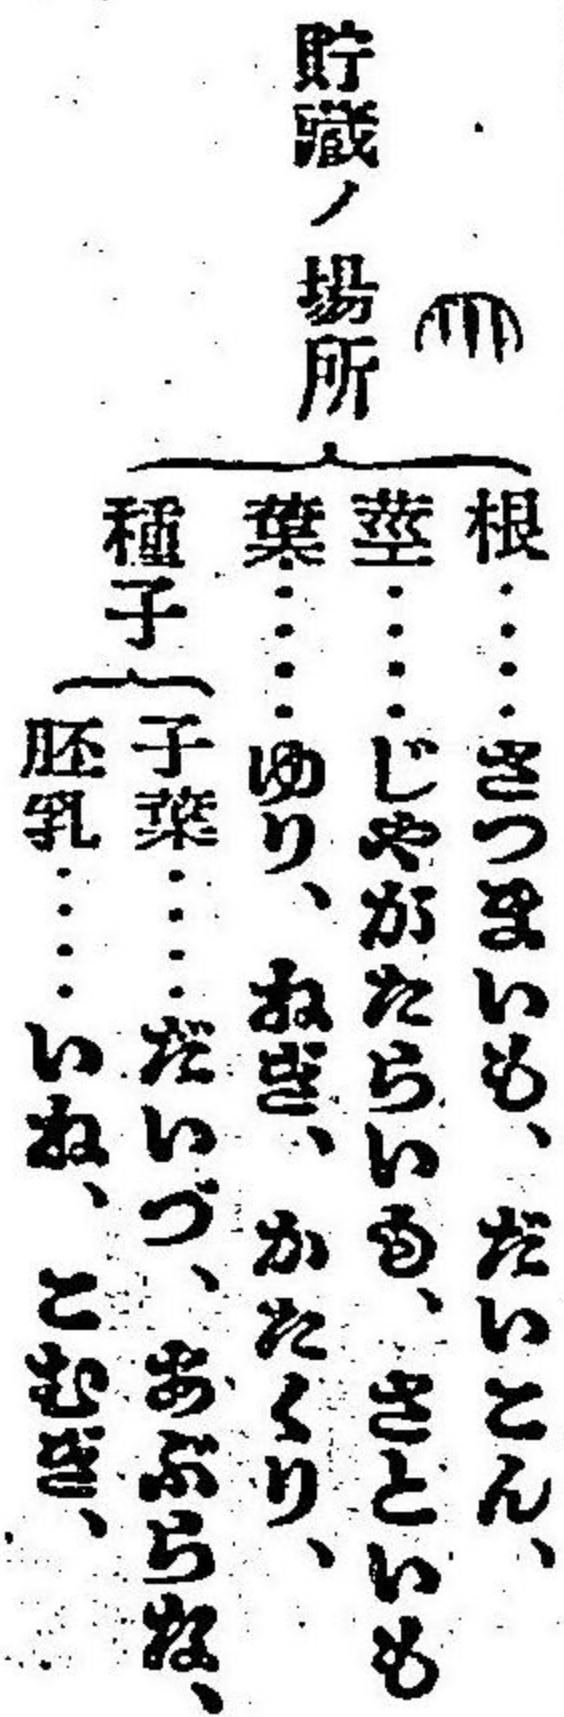 貯藏ノ場所
根‥‥さつまいも、だいこん、
莖‥‥じやがたらいも、さといも
葉‥‥ゆり、ねぎ、かたくり、
種子
子葉‥‥だいづ、あぶらな、
胚乳‥‥いね、こむぎ、